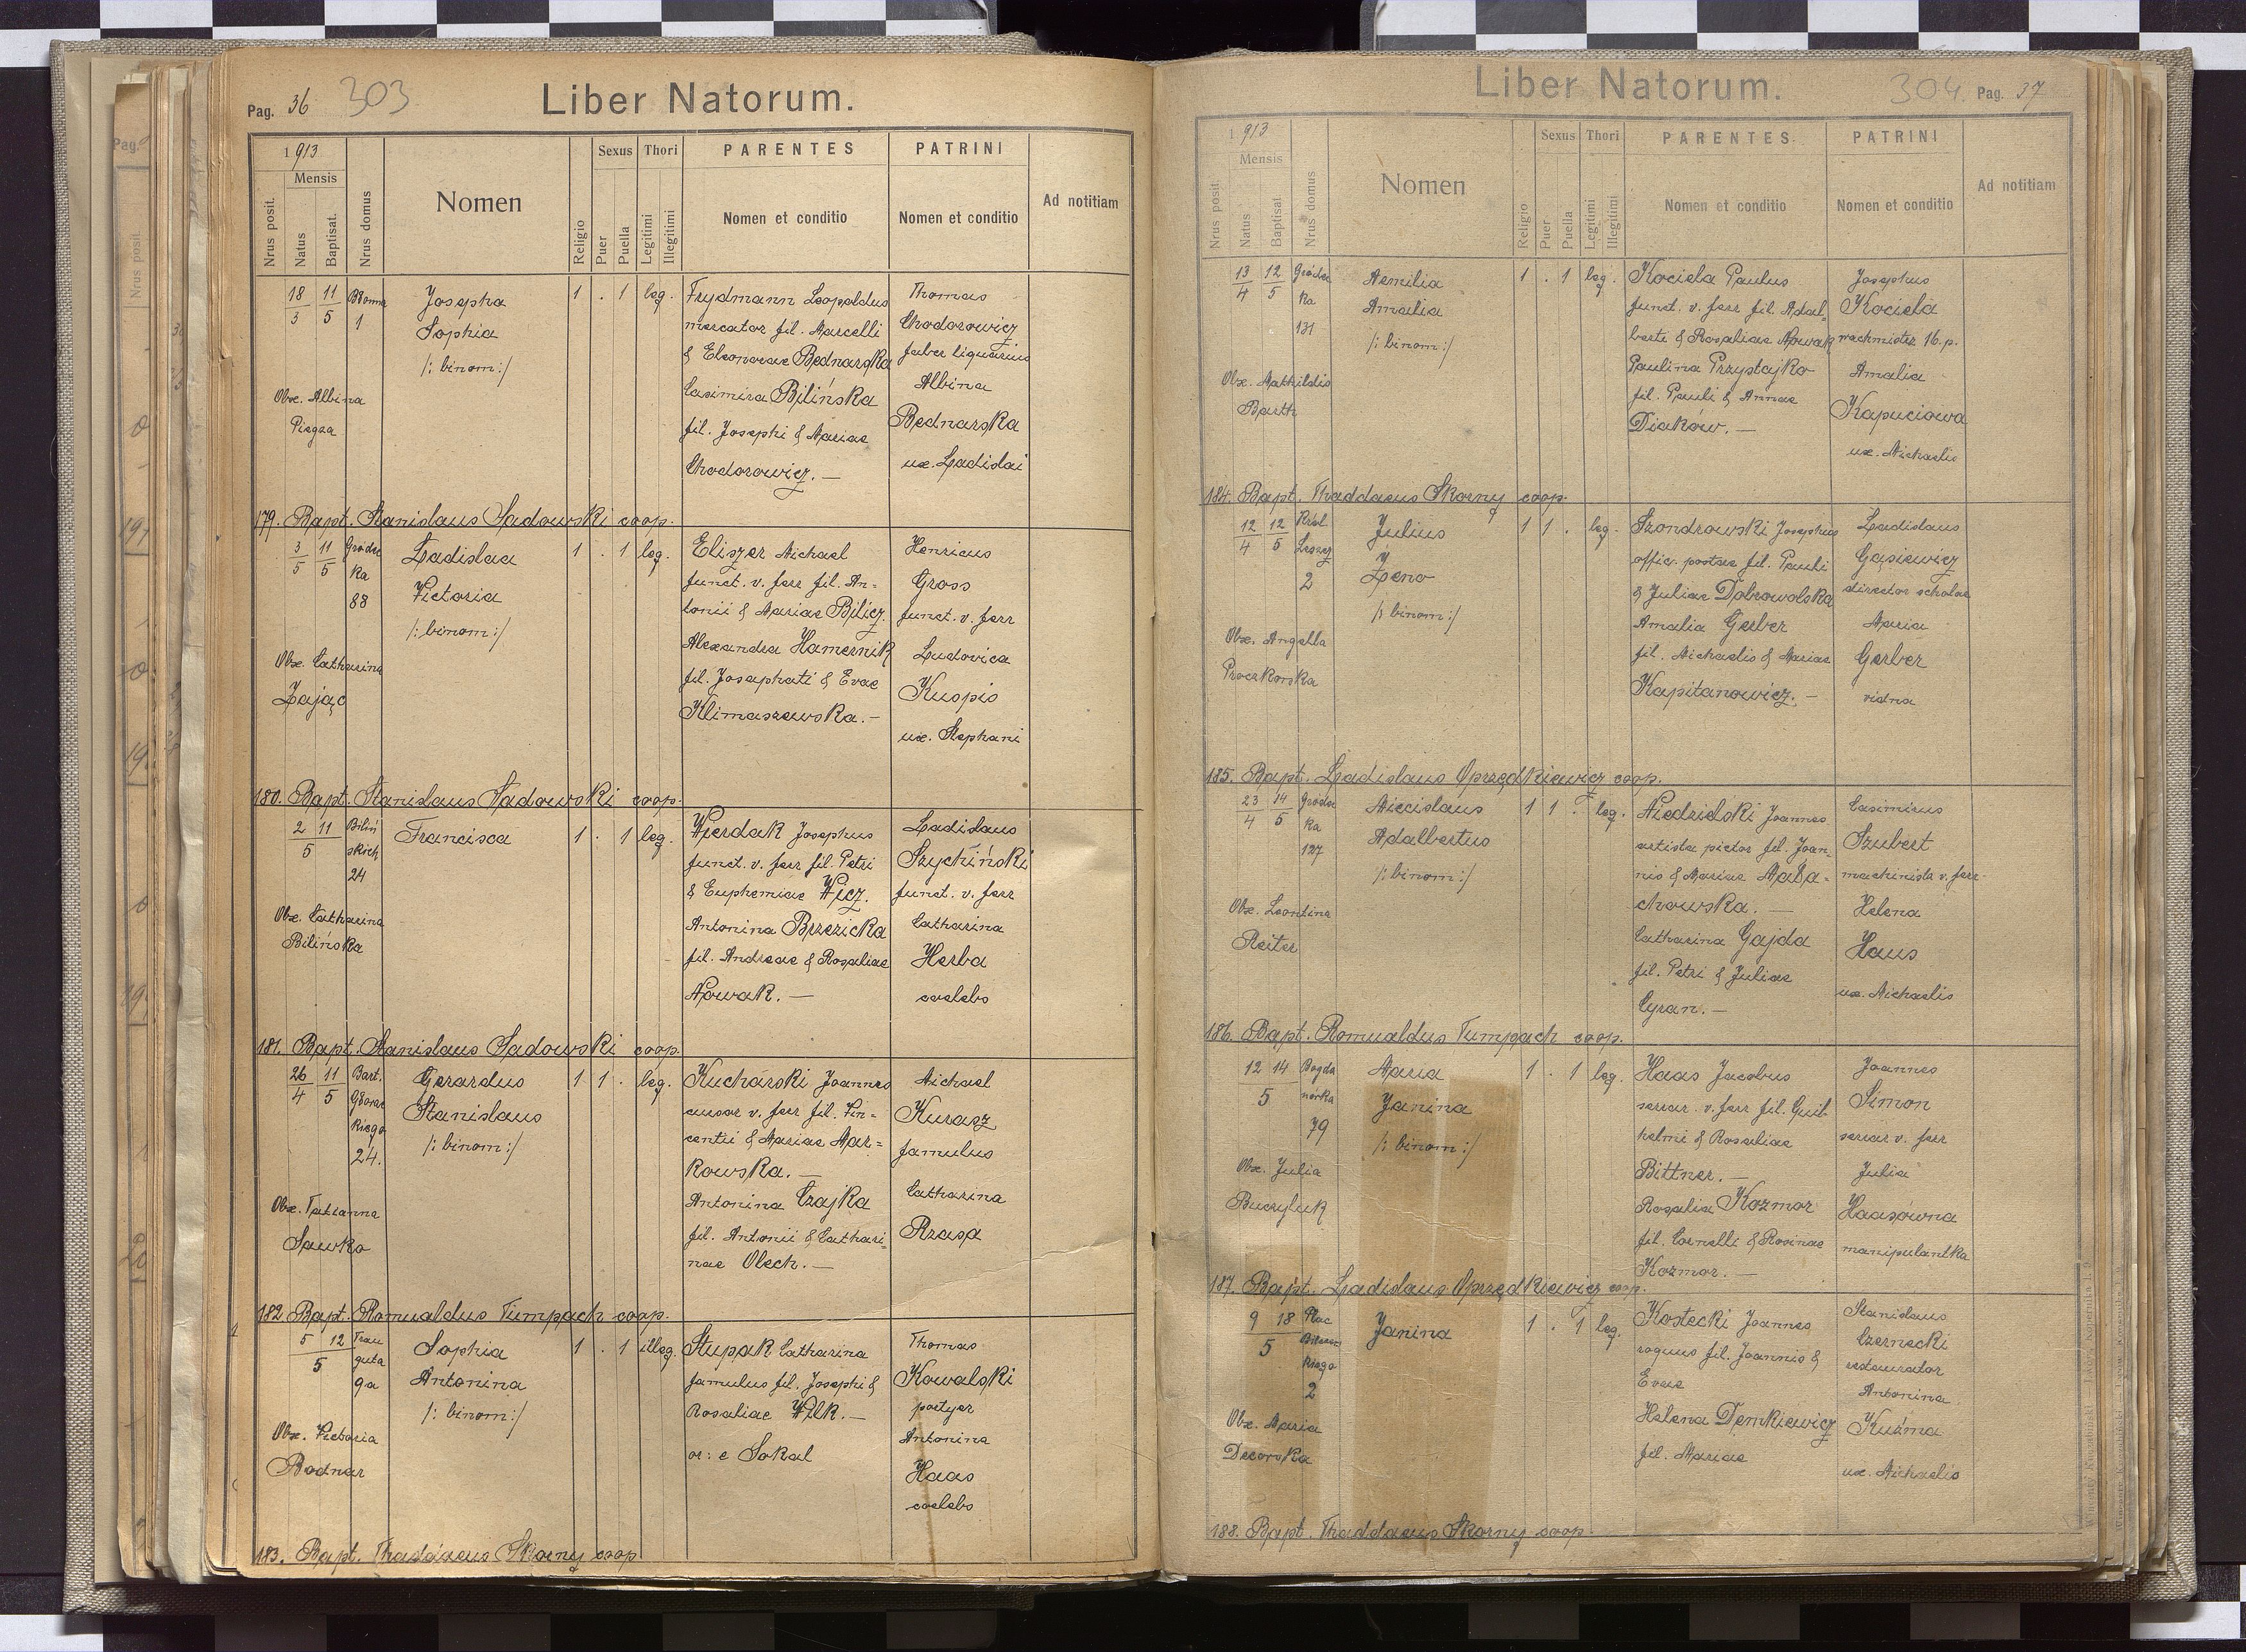 Pag. 36 303 Liber Natorum.
1 913
Mensis
Nrus posit.
Natus
Baptisat.
Nrus domus
Nomen
Religio
Sexus
Puer
Puella
Thori
Legitimi
Illegitimi
PARENTES
Nomen et conditio
PATRINI
Nomen et conditio
Ad notitiam
18/3 11/5 Błonna 1
Josepha
Sophia
/: binom :/
Obx. Albina
Piegza
1 . 1 leg.
Frydmann Leopoldus
mercator fil. Marcelli
& Eleonorae Bednarska
Casimira Bilińska
fil. Josephi & Mariae
Chodorowicz. —
Thomas
Chodorowicz
faber liquarius
Albina
Bednarska
ux. Ladislai
179. Bapt. Stanislaus Sadowski coop.
3/5 11/5 Gródec
ka
88
Ladislaa
Victoria
/: binom :/
Obx. Catharina
Zając
1 . 1 leg.
Eliszer Michael
funct. v. ferr fil. An=
tonii & Mariae Bilicz.
Alexandra Hamernik
fil. Josaphati & Evae
Klimaszewska. —
Henricus
Gross
funct. v. ferr
Ludovica
Kuspis
ux. Stephani
180. Bapt. Stanislaus Sadowski coop.
2 11
5
Biliń
skich
24
Francisca
Obx. Catharina
Bilińska
1 . 1 leg.
Wierdak Josephus
funct. v. ferr fil. Petri
& Euphemiae Wicz.
Antonina Brzezicka
fil. Andreae & Rosaliae
Nowak. —
Ladislaus
Szychiński
funct. v. ferr
Catharina
Herba
coelebs
181. Bapt. Stanislaus Sadowski coop.
26/4 11/5 Bart.
Głowac
kiego
24.
Gerardus
Stanislaus
/: binom :/
Obx. Tatianna
Sawko
1 1 . leg.
Kucharski Joannes
cursor v. ferr fil. Vin=
centii & Mariae Mar=
kowska. —
Antonina Czajka
fil. Antonii & Cathari=
nae Olech. —
Michael
Kurasz
famulus
Catharina
Rzasa
182 Bapt. Romualdus Tumpach coop.
5 12
5
Trau
guta
9a
Sophia
Antonina
/: binom :/
Obx. Victoria
Bodnar
1 . 1 illeg.
Stupak Catharina
famulus fil. Josephi &
Rosaliae Wilk. —
or: e Sokal
Thomas
Kowalski
portyer
Antonina
Haas
coelebs
183. Bapt. Thaddaeus Skorny coop
Liber Natorum. 304. Pag. 37
1 913
Mensis
Nrus posit.
Natus
Baptisat.
Nrus domus
Nomen
Religio
Sexus
Puer
Puella
Thori
Legitimi
Illegitimi
PARENTES.
Nomen et conditio
PATRINI
Nomen et conditio
Ad notitiam
13/4 12/5 Gródec
ka
131
Aemilia
Amalia
/: binom :/
Obx. Mathildis
Barth
1 . 1 leg.
Kociela Paulus
funct. v. ferr fil. Adal=
berti & Rosaliae Nowak
Paulina Przystajko
fil. Pauli & Annae
Diaków. —
Josephus
Kociela
wachmister 16. p.
Amalia
Kapuciowa
ux. Michaelis
184. Bapt. Thaddaeus Skorny coop.
12/4 12/5 Król.
Leszcz
2
Julius
Zeno
/: binom :/
Obx. Angella
Proczkowska
1 1 . leg.
Szondrowski Josephus
offic. postae fil. Pauli
& Juliae Dobrowolska
Amalia Gerber
fil. Michaelis & Mariae
Kapitanowicz. —
Ladislaus
Gąsiewicz
director scholae
Maria
Gerber
vidna
185. Bapt. Ladislaus Oprzędkiewicz coop.
23/4 14/5 Gródec
ka
127
Miecislaus
Adalbertus
/: binom :/
Obx. Leontina
Reiter
1 1 . leg.
Niedzielski Joannes
artista pictor fil. Joan=
nis & Mariae Mała=
chowska. —
Catharina Gajda
fil. Petri & Juliae
Cyran. —
Casimirus
Szubert
machinista v. ferr
Helena
Haus
ux. Michaelis
186. Bapt. Romualdus Tumpach coop.
12 14
5
Bogda
nówka
79
Maria
Janina
/: binom :/
Obx. Julia
Buczyluk
1 . 1 leg.
Haas Jacobus
serrar. v. ferr fil. Guil
helmi & Rosaliae
Bittner. —
Rosalia Kozmor
fil. Cornelli & Rosinae
Kozmor. —
Joannes
Simon
serrar v. ferr
Julia
Haasówna
manipulantka
187. Bapt. Ladislaus Oprzędkiewicz coop.
9 18
5
Plac
kiego
2
Janina
Obx. Maria
Decowska
1 . 1 leg.
Kostecki Joannes
coquus fil. Joannis &
Evae
Helena Demkiewicz
fil. Mariae
Stanislaus
Czernecki
restaurator
Antonina
Kuźma
ux. Michaelis
188. Bapt. Thaddaeus Skorny coop.